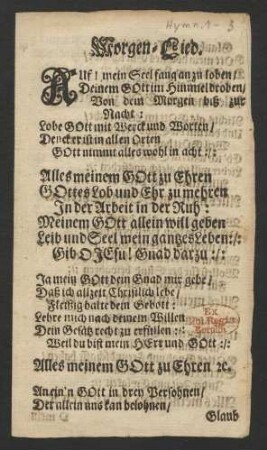 Hymn. 1 - 3
Morgen-Lied.
AUf! mein Seel fang an zu loben/
Deinem GOtt im Himmel droben/
Von dem Morgen biß zur
Nacht:
Lobe GOtt mit Werck und Worten/
Denck er ist in allen Orten
GOtt nimmt alles wohl in acht :/:
Alles meinem GOtt zu Ehren
GOttes Lob und Ehr zu mehren
In der Arbeit in der Ruh:
Meinem GOtt allein will geben
Leib und Seel mein gantzes Leben :/:
Gib O JEsu! Gnad darzu :/:
Ja mein GOtt dein Gnad mir gebe/
Daß ich allzeit Christlich lebe/
Fleissig halte dein Gebott:
Lehre mich nach deinem Willen
Dein Gesätz recht zu erfüllen :/:
Weil du bist mein HErr und GOtt :/:
Alles meinem GOtt zu Ehren ꝛc.
An ein'n GOtt in drey Persohnen/
Der allein uns kan belohnen/
Glaub
Ex
Bibl. Regia
Berolin.